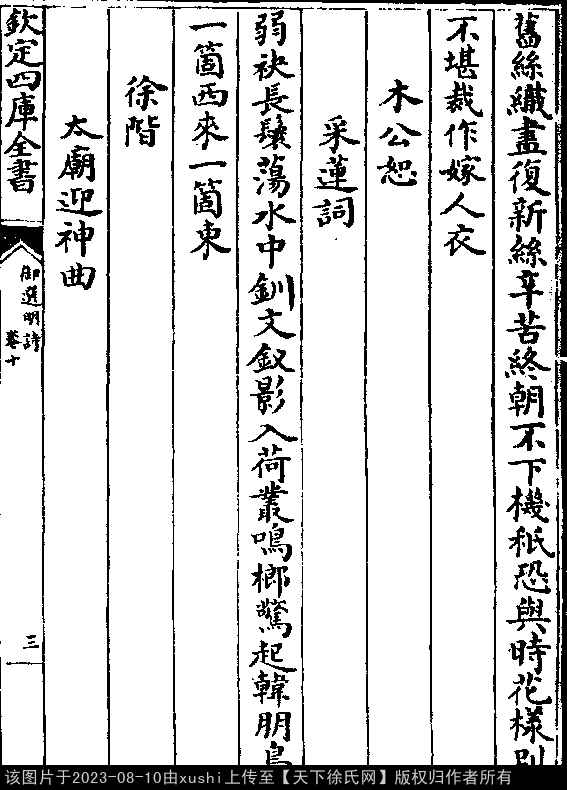 舊絲織盡復新絲辛苦終朝不下機秖恐與時花様别
不堪裁作嫁人衣
木公恕
采蓮詞
弱袂長鬟蕩水中釧文釵影入荷叢鳴榔驚起韓朋鳥
一箇西來一箇東
徐階
太廟迎神曲
欽定四庫全書
御選明詩
卷十
三
该图片于2023-08-10由xushi上传至【天下徐氏网】版权归作者所有